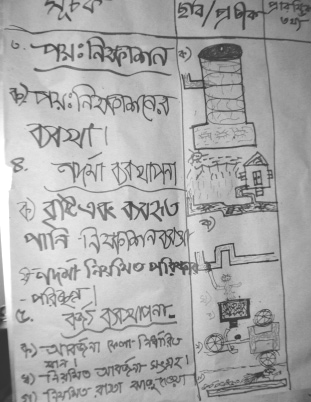 সূচক ছবি/প্রতীক
৩. পয়ঃনিষ্কাশন ক)
ক) পয়ঃনিষ্কাশনের
ব্যবস্থা।
৪. নর্দমা ব্যবস্থাপনা
ক) বৃষ্টি এবং ব্যবহৃত
পানি নিষ্কাশন ব্যবস্থা
খ) নর্দমা নিয়মিত পরিষ্কার
-পরিচ্ছন্ন।
৫. বর্জ্য ব্যবস্থাপনা-
ক) আবর্জনা ফেলা নির্ধারিত
স্থান।
খ) নিয়মিত আবর্জনা সংগ্রহ।
গ) নিয়মিত রাস্তা ঝাড়ু দেওয়া